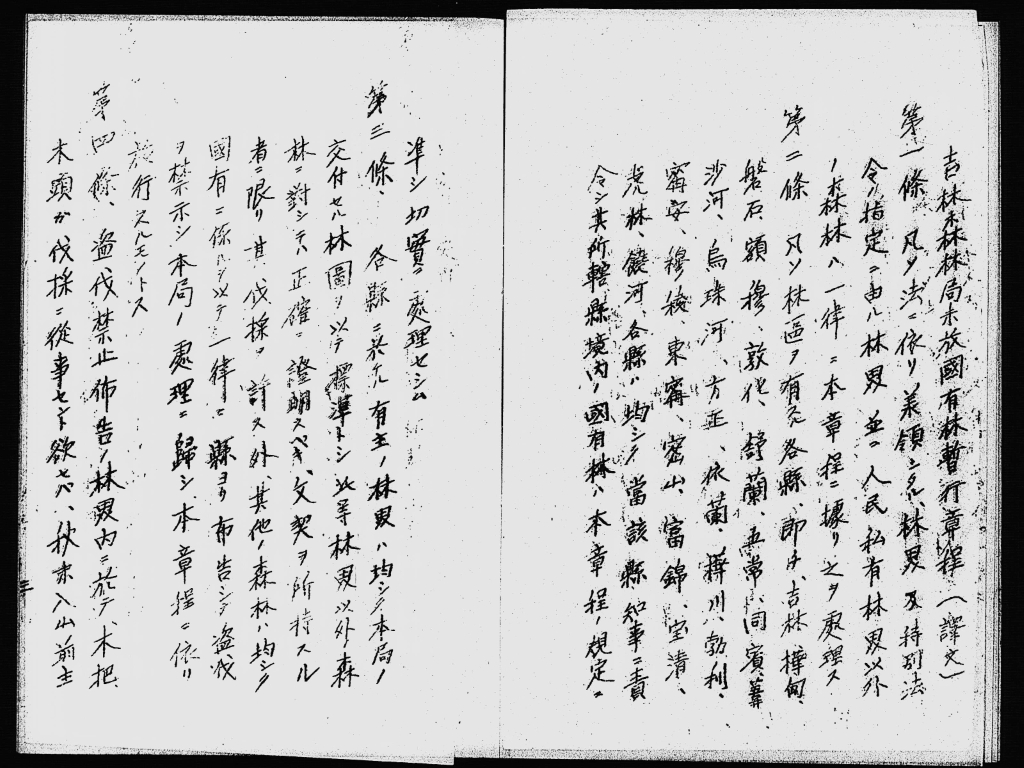 吉林森林局未放國有林暫行章程(譯文)
第一條 凡ソ法ニ依リ美領シタル林界及特別法
令ノ指定ニ由ル林界並ニ人民私有林界以外
ノ森林ハ一律ニ本章程ニ據リ之ヲ處理ス
第二條 凡ソ林區ヲ有スル各縣、即チ、吉林樺甸、
磐石額穆、敦化、舒蘭、五常、同賓、葦
沙河、烏珠河、方正、依蘭、樺川、勃利、
寗安、穆稜、東寗、密山、富錦、宝清、
虎林、饒河、各縣ハ均シク當該縣知事ニ責
令シ其所轄縣境内ノ國有林ハ本章程ノ規定ニ
準シ切實ニ處理セシム
第三條、各縣ニ於ケル有主ノ林界ハ均シク本局ノ
交付セル林圖ヲ以テ標準トシ此等林界以外森
林ニ對シテハ正確ニ證明スベキ、文契ヲ所持スル
者ニ限リ其ノ伐採ヲ許ス外、其他ノ森林ハ均シク
國有ニ係ルヲ以テ一律ニ縣ヨリ布告シテ盗伐
ヲ禁示シ本局ノ處理ニ歸シ本章程ニ依リ
施行スルモノトス
第四條、盗伐禁止佈告ノ林界内ニ於テ、木把、
木頭カ伐採ニ從事セント欲セバ、秋末入山前主